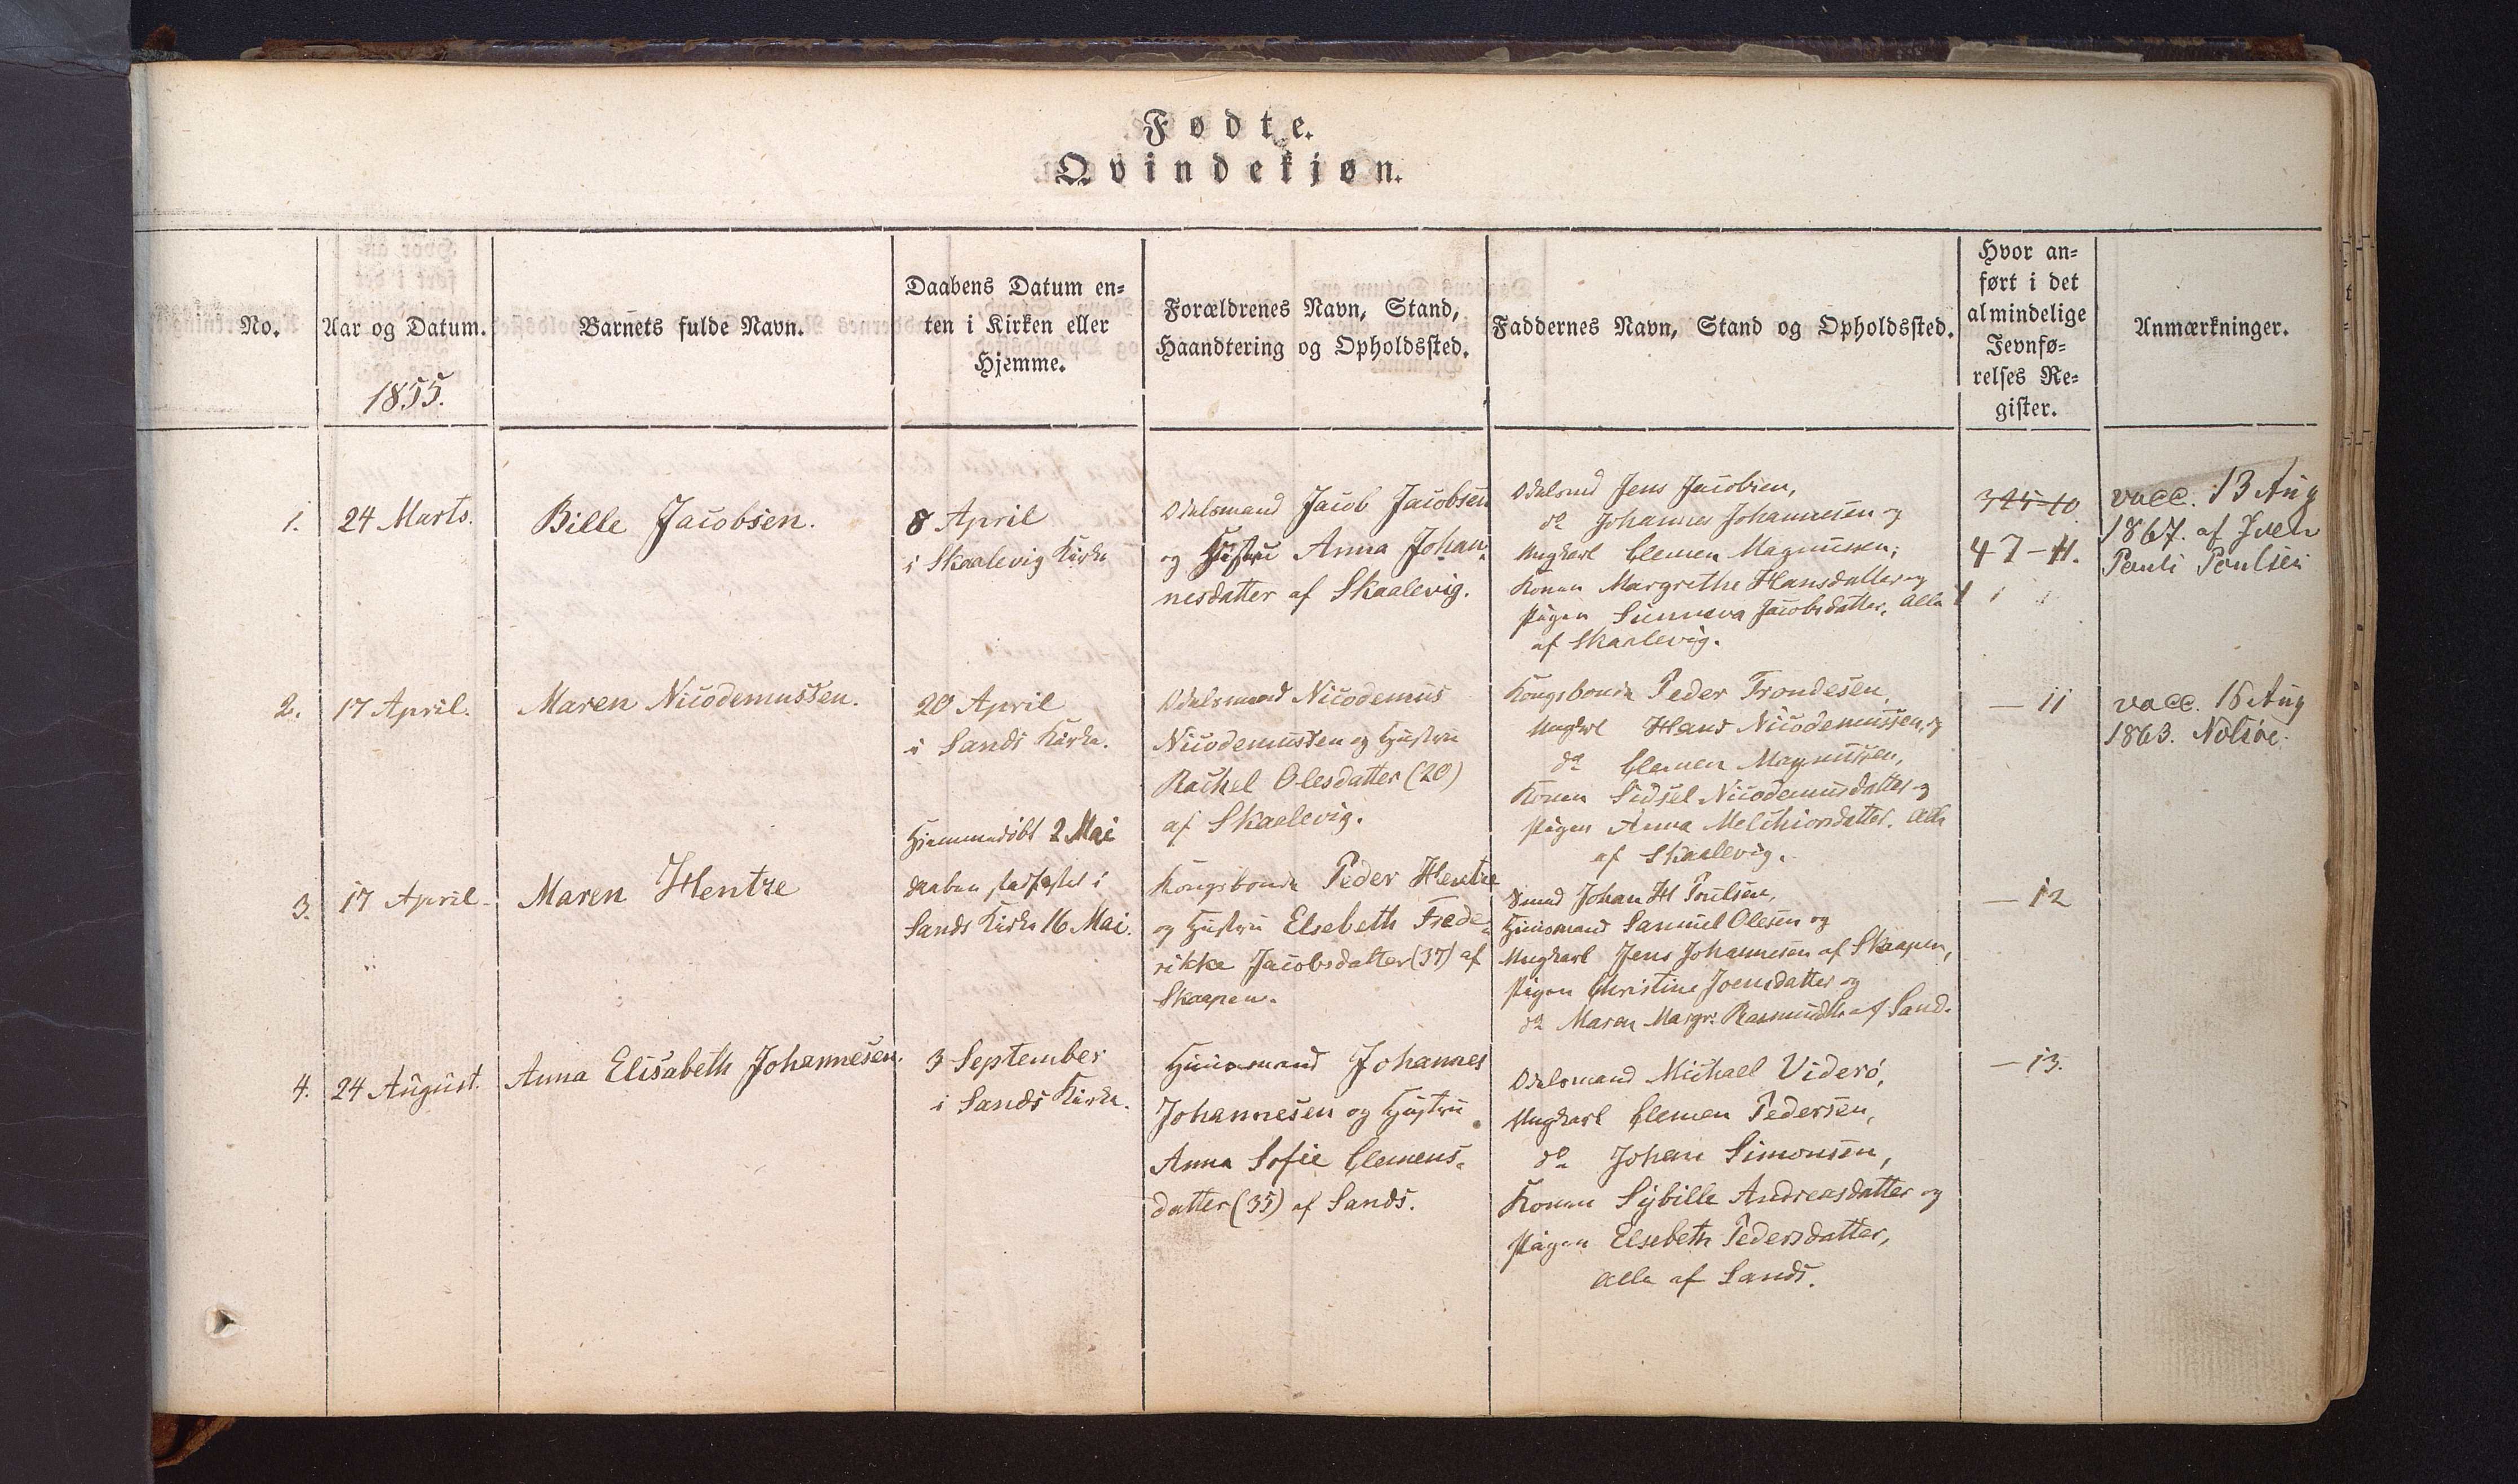 Fødte.
Qvindekjøn.
No.
Aar og Datum.
1855.
Barnets fulde Navn.
Daabens Datum en-
ten i Kirken eller
Hjemme.
Forældrenes Navn, Stand,
Haandtering og Opholdssted.
Faddernes Navn, Stand og Opholdssted.
Hvor an-
ført i det
almindelige
Jevnfø-
relses Re-
gister.
Anmærkninger.
1.
24 Marts.
Bille Jacobsen.
8 April
i Skaalevig Kirke
Odelsmand Jacob Jacobsen
og Hustru Anna Johan-
nesdatter af Skaalevig.
Odelsmd Jens Jacobsen,
do Johannes Johannesen og
Ungkarl Clemen Magnussen,
Konen Margrethe Hansdatter og
Pigen Sunneva Jacobsdatter, Alle
af Skaalevig.
47-11.
vacc. 13 Aug
1867. af Joen
Pauli Poulsen
2.
17 April.
Maren Nicodemussen.
20 April
i Sands Kirke.
Odelsmand Nicodemus
Nicodemussen og Hustru
Rachel Olesdatter (20)
af Skaalevig.
Kongsbonde Peder Trondesen,
Ungkarl Hans Nicodemussen, og
do Clemen Magnussen,
Konen Sidsel Nicodemusdatter og
Pigen Anna Melchiorsdatter. Alle
af Skaalevig.
— 11
vacc. 16 Aug
1863. Nolsøe.
3.
17 April.
Maren Hentze
Hjemmedøbt 2 Mai
Daaben stadfæstet i
Sands Kirke 16 Mai.
Kongsbonde Peder Hentze
og Hustru Elsebeth Frede-
rikke Jacobsdatter (37) af
Skaapen.
Johan H Poulsen,
Huusmand Samuel Olesen og
Ungkarl Jens Johannesen af Skaapen,
Pigen Christine Joensdatter og
do Maren Margr: Rasmusdtr af Sand.
— 12
4.
24 August.
Anna Elisabeth Johannesen.
3 September
i Sands Kirke.
Huusmand Johannes
Johannesen og Hustru
Anna Sofie Clemens-
datter (35) af Sands.
Odelsmand Michael Viderö,
Ungkarl Clemen Pedersen,
do Johan Simonsen,
Konen Sybille Andreasdatter og
Pigen Elsebeth Pedersdatter,
Alle af Sands.
— 13.